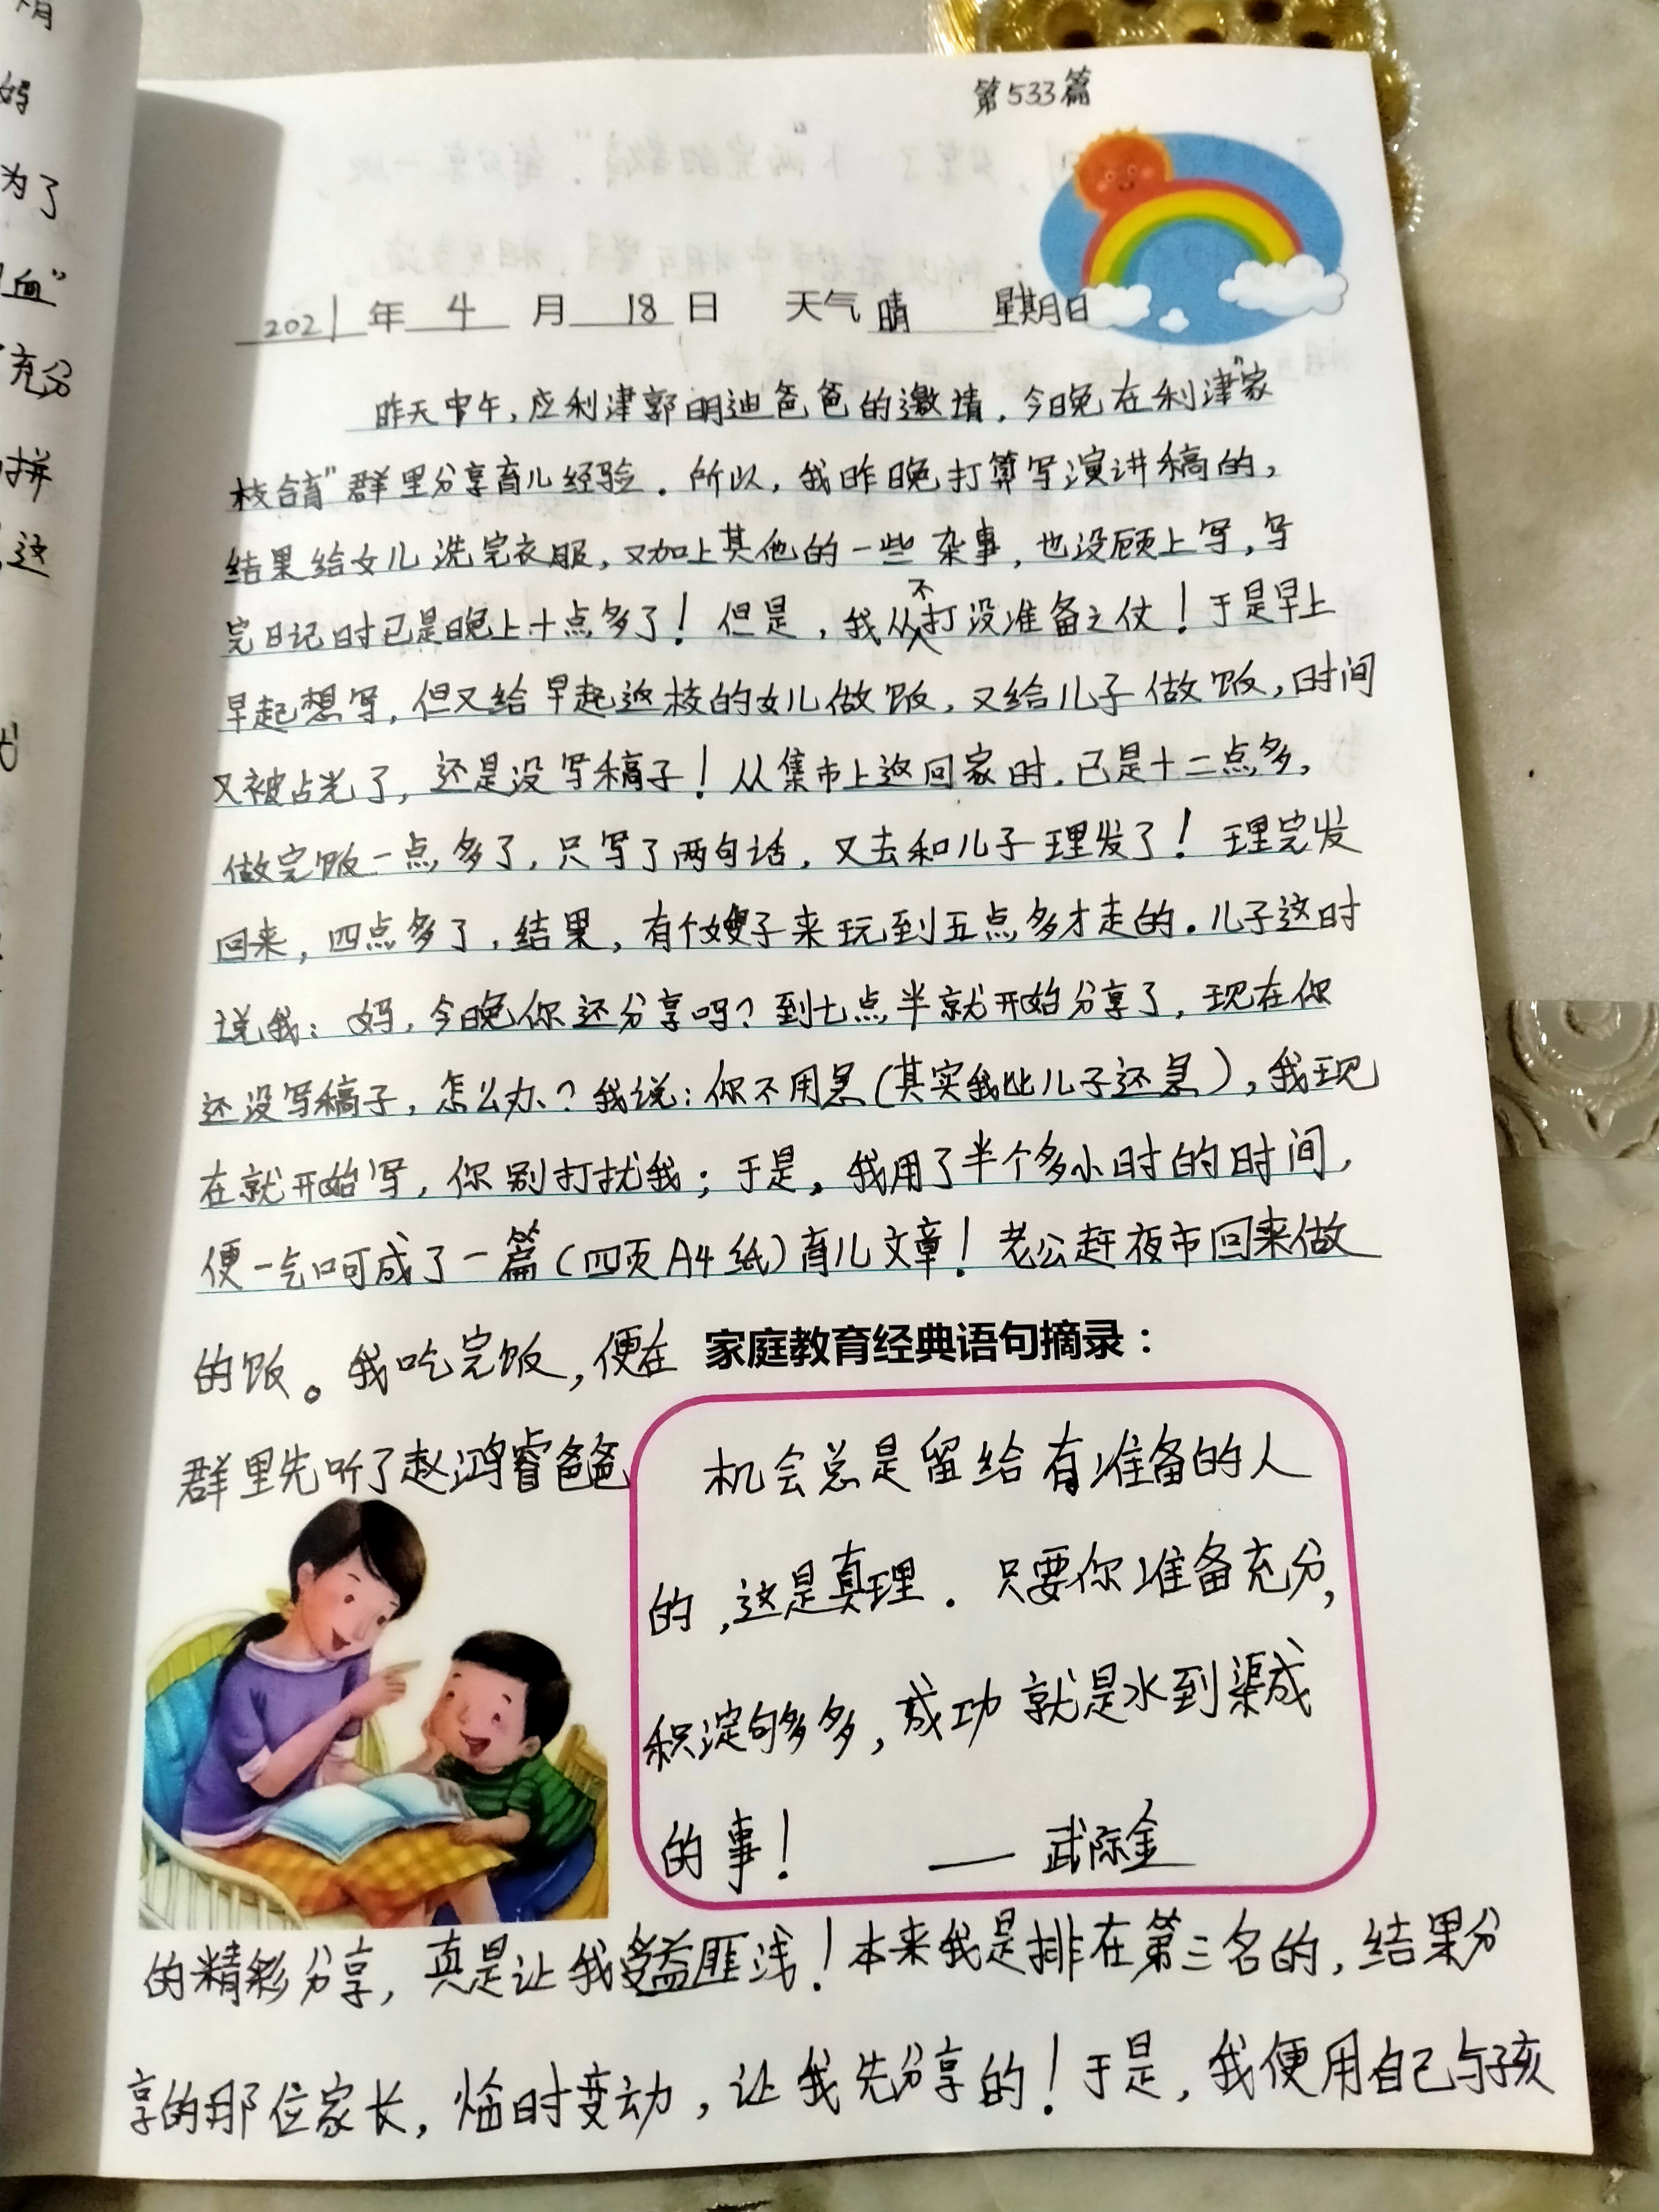 月
妈
为了
血”
充分
拼
这
第533篇
2021年 4 月 18 日 天气 晴 星期日
昨天中午，应利津郭明迪爸爸的邀请，今晚在利津“家
校合育”群里分享育儿经验。所以，我昨晚打算写演讲稿的，
结果给女儿洗完衣服，又加上其他的一些杂事，也没顾上写，写
完日记时已是晚上十点多了！但是，我从不打没准备之仗！于是早上
早起想写，但又给早起返校的女儿做饭，又给儿子做饭，时间
又被占光了，还是没写稿子！从集市上返回家时，已是十二点多，
做完饭一点多了，只写了两句话，又去和儿子理发了！理完发
回来，四点多了，结果，有个嫂子来玩到五点多才走的。儿子这时
说我：妈，今晚你还分享吗？到七点半就开始分享了，现在你
还没写稿子，怎么办？我说：你不用急（其实我比儿子还急），我现
在就开始写，你别打扰我；于是，我用了半个多小时的时间，
便一气呵成了一篇（四页A4纸）育儿文章！老公赶夜市回来做
的饭。我吃完饭，便在
群里先听了赵鸿睿爸爸
家庭教育经典语句摘录：
机会总是留给有准备的人
的，这是真理。只要你准备充分，
积淀够多多，成功就是水到渠成
的事！ —— 武际金
的精彩分享，真是让我受益匪浅！本来我是排在第三名的，结果分
享的那位家长，临时变动，让我先分享的！于是，我便用自己与孩